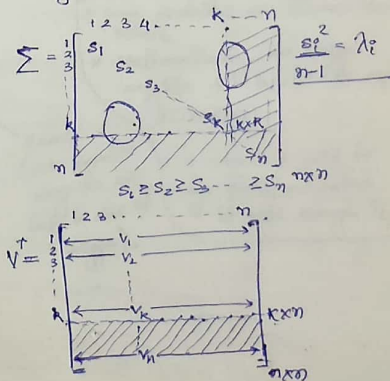 1 2 3 4 --- k --- n
Σ = 1 2 3 k n
S₁
S₂
S₃
Sₖ k×k
Sₙ
n×n
sᵢ² / n-1 = λᵢ
S₁ ≥ S₂ ≥ S₃ ---- ≥ Sₙ
1 2 3 ........ n
V^T = 1 2 3 k
V₁
V₂
Vₖ
k×n
Vₙ
n×n